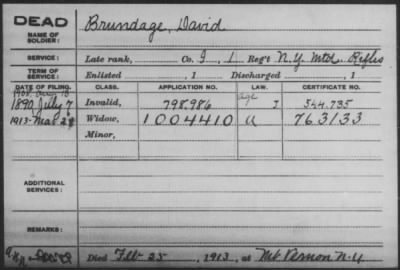 DEAD
NAME OF SOLDIER: Brundage, David
SERVICE: Late rank, Co. I, 1 Reg't N.Y. Mtd. Rifles
TERM OF SERVICE: Enlisted , 1 Discharged , 1
DATE OF FILING. CLASS. APPLICATION NO. LAW. CERTIFICATE NO.
1890, July 7 Invalid, 798,986 age J 544.735
1913- Mar 28 Widow, 1004410 a 763133
Minor,
ADDITIONAL SERVICES:
REMARKS:
Died Feb 25, 1913, at Mt Vernon N.Y.